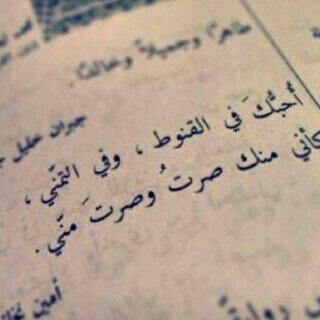 طاهراً وجميلاً وخالداً.
جبران خليل
أحبُّكَ في القنوط ، وفي التمنّي ،
كأني منك صرتُ وصرتَ منّي.
أمين نخلة